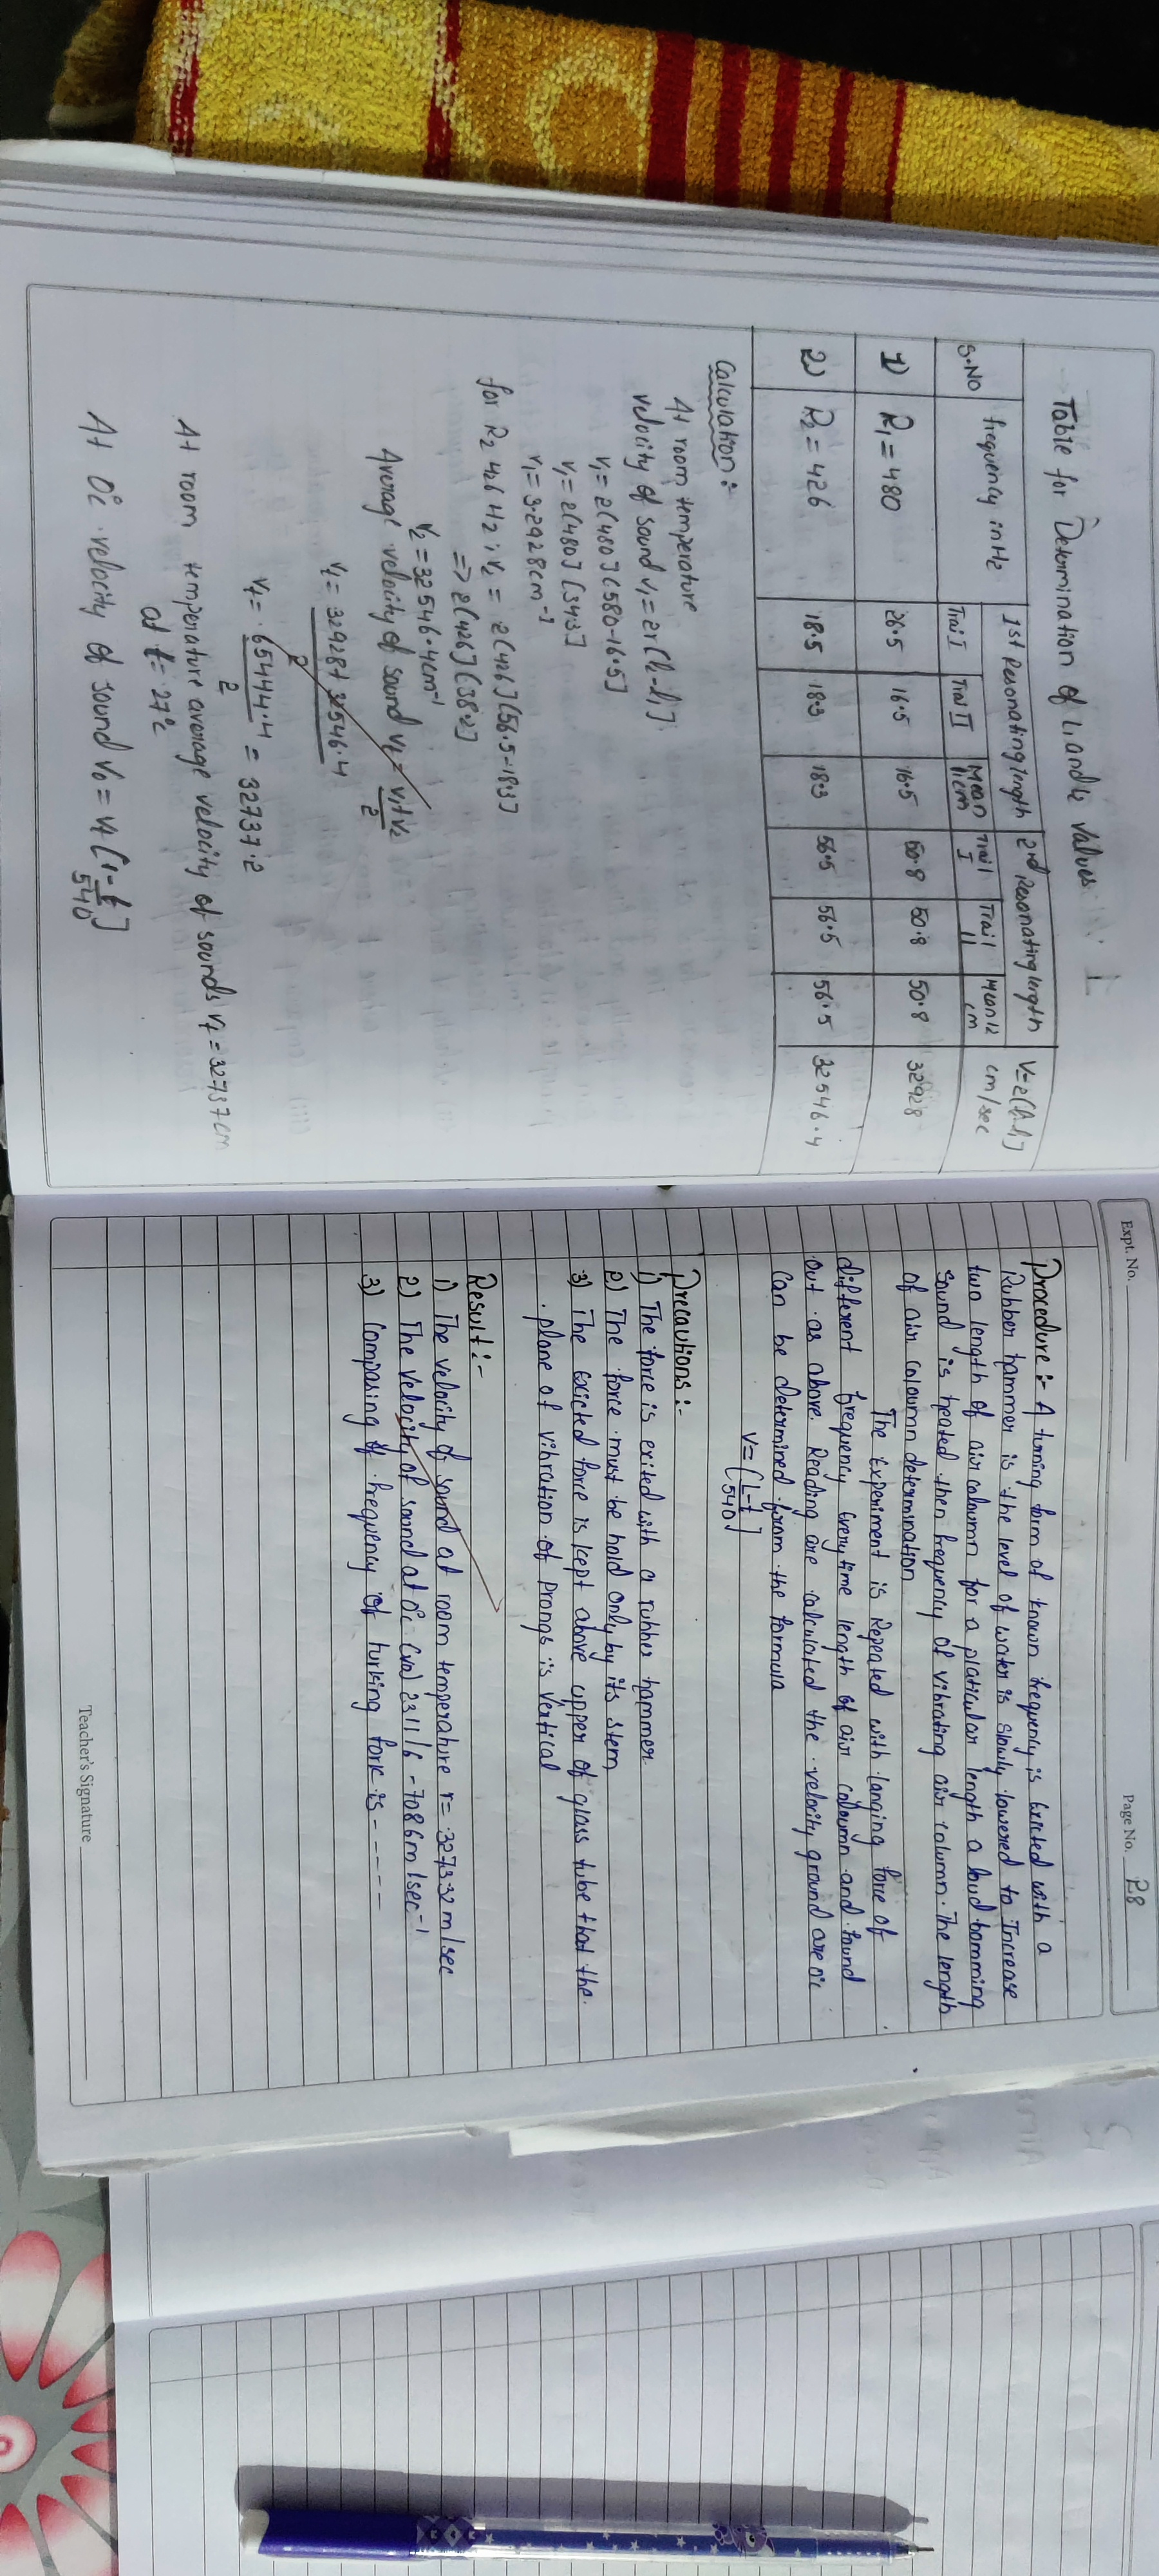 Table for Determination of L1 and L2 values
S.No
frequency in Hz
1st Resonating length
2nd Resonating length
Trail I
Trail II
Mean
Trail I
Trail II
Mean l2 cm
cm/sec
1)
R1 = 480
16.5
16.5
50.8
50.8
50.8
32928
2)
R2 = 426
18.5
18.3
18.3
56.5
56.5
56.5
32546.4
Calculation :-
At room temperature
velocity of sound v1 = 2r(l2-l1]
v1 = 2(480](580-16.5]
v1 = 2(480](343]
v1 = 3.2928cm-1
for R2 426 Hz ; v2 = 2(426](56.5-18.3]
=> 2(426](38.2]
v2 = 32546.4cm-1
Average velocity of sound vt = v1+v2/2
vt = 32928+32546.4
2
vt = 65474.4/2 = 32737.2
At room temperature average velocity of sounds vt = 32737cm
at t = 27°c
At 0°c velocity of sound v0 = vt [1-t/540]
Expt. No.
Page No. 28
Procedure :- A tuning form of known frequency is excited with a
Rubber hammer is the level of water is slowly lowered to Increase
two length of air coloumn for a platicular length a loud bomming
sound is heated then frequency of vibrating air column. The length
of air coloumn determination
The Experiment is Repeated with langing force of
different frequency every time length of air coloumn and found
out as above. Reading are calculated the velocity ground are 0°c
Can be determined from the formula
v = (L-t/540]
Precautions :-
1) The force is exited with a rubber hammer.
2) The force must be hold only by its stem
3) The exicted force is kept above upper of glass tube that the
plane of vibraction of prongs is vertical
Result :-
1) The velocity of sound at room temperature r = 3273.32 m/sec
2) The velocity of sound at 0°c (v0) 33116-7086m/sec-1
3) Comparing of frequency of turking fork is - - - - -
Teacher's Signature